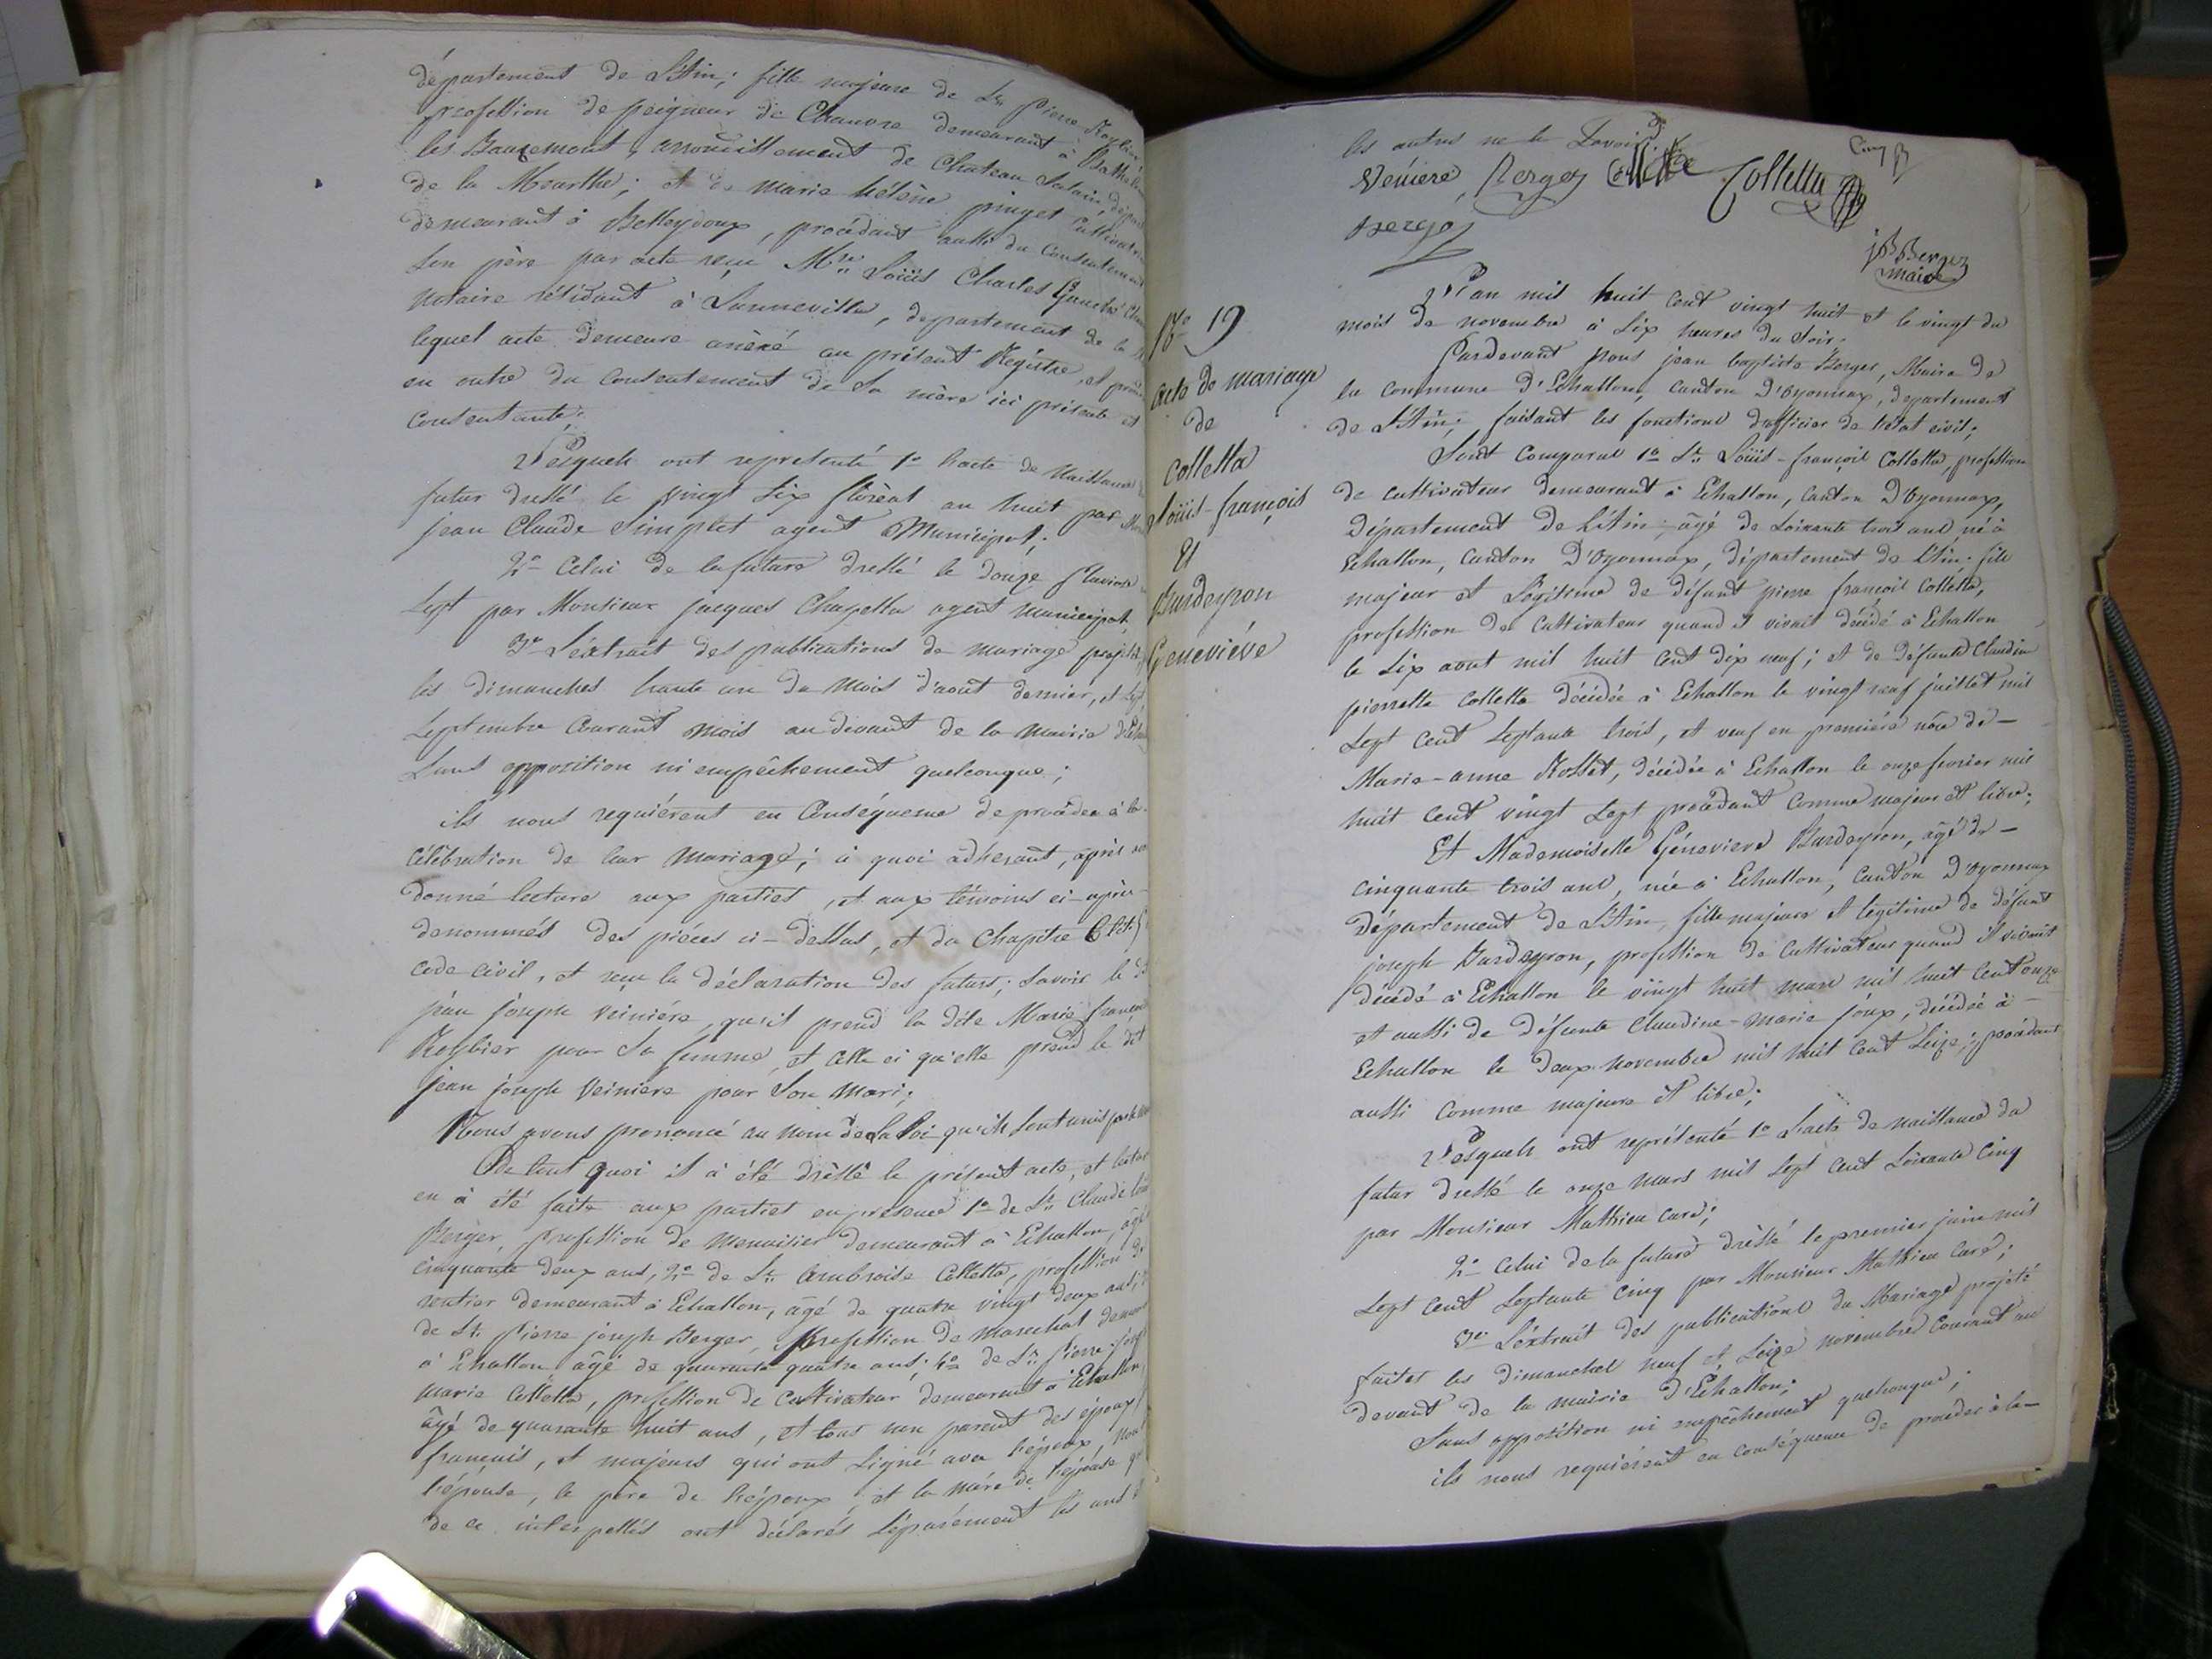 département de L'Ain; fille majeure de Sr. pierre Roybier
profession de peigneur de Chanvre demeurant à Bathel
les Bauzemont, arrondissement de Chateau Salain, dépar
de la Meurthe; et de Marie hélène pinget Cultivatrice
demeurant à Belleydoux, procédant aussi du Consentement
Son père par acte reçu Mre Loüis Charles
notaire résidant à Lunneville, departement de la
lequel acte demeure anéxé au présent Régistre, et
en outre du Consentement de Sa mère ici présente et
Consentante;
Lesquels ont représenté 1º l'acte de Naissance
futur dressé le vingt Six floréal an huit par
jean Claude Simplet agent Municipal;
2º Celui de la future dressé le douze pluviose
Sept par Monsieur jacques Chapella agent municipal
3º L'éxtrait des publications de mariage projeté
les dimanches trante un du Mois d'aout dernier, et Sept
Septembre Courant mois au devant de la Mairie
Sans opposition ni empêchement quelconque;
ils nous requiérent en Conséquence de procéder à la
Célébration de leur Mariage; à quoi adhérant, après
donné lecture aux parties, et aux témoins ci-après
denommés des pièces ci-dessus, et du Chapitre 6
code civil, et reçu la déclaration des futurs; Savoir le
jean joseph Veiniére, qu'il prend la dite Marie françoise
Roybier pour Sa femme, et celle ci qu'elle prend le dit
jean joseph Veiniere pour Son Mari;
Nous avons prononcé au nom de La Loi qu'ils Sont unis
De tout quoi il à été dressé le présent acte, et lecture
en à été faite aux parties en présence 1º de Sr. Claude
Berger, profession de Menuisier demeurant à Echallon, âgé
cinquante deux ans, 2º de Sr. Ambroise Colletta, profession de
rentier demeurant à Echallon, âgé de quatre vingt deux ans;
de Sr. pierre joseph Berger, profession de Marechal
à Echallon âgé de quarante quatre ans; 4º de Sr. pierre
marie Colletta, profession de Cultivateur demeurant à Echallon,
âgé de quarante huit ans, et tous non parent des époux
français, et majeurs qui ont Signé avec l'époux, non
l'épouse, le père de l'époux, et la mère de l'épouse
de ce interpellés ont déclarés Séparément les uns
les autres ne le Savoir.
Vèniere Berger Colletta Colletta
Berger
jB Berger
maire
Nº 19
acte de mariage
de
Colletta
Loüis-françois
Et
Burdeyron
Geneviéve
L'an mil huit Cent vingt huit et le vingt du
mois de novembre à Six heures du Soir;
Pardevant Nous jean baptiste Berger, Maire de
la commune d'Echallon, canton d'Oyonnax, département
de L'Ain; faisant les fonctions d'officier de l'état civil;
Sont Comparus 1º Sr. Loüis-françois Colletta, profession
de cultivateur demeurant à Echallon, Canton d'Oyonnax,
Département de L'Ain; âgé de Soixante trois ans, né à
Echallon, Canton d'Oyonnax, département de L'Ain; fils
majeur et Légitime de défunt pierre françois Colletta,
profession de Cultivateur quand il vivait décédé à Echallon
le Six aout mil huit Cent dix neuf; et de défunte Claudine
pierrette Colletta décédée à Echallon le vingt neuf juillet mil
Sept Cent Septante trois, et veuf en première nôce de -
Marie-anne Rosset, décédée à Echallon le onze fevrier mil
huit Cent vingt Sept procédant Comme majeur et libre;
Et Mademoiselle Géneviéve Burdeyron, âgé de -
cinquante trois ans, née à Echallon, Canton d'Oyonnax
Département de L'Ain, fille majeure et légitime de défunt
joseph Burdeyron, profession de Cultivateur quand il vivait
décédé à Echallon le vingt huit mars mil huit Cent onze
et aussi de défunte Claudine-Marie joux, décédée à -
Echallon le deux Novembre mil huit Cent Seize; procédant
aussi Comme majeure et libre;
Lesquels ont représenté 1º L'acte de naissance du
futur dressé le onze Mars mil Sept Cent Soixante Cinq
par Monsieur Mathieu Curé;
2º Celui de la future dressé le premier juin mil
Sept Cent Septante Cinq par Monsieur Mathieu Curé;
3º L'éxtrait des publications du Mariage projeté
faites les dimanches neuf et Seize novembre Courant au
devant de la mairie d'Echallon;
Sans opposition ni empêchement quelconque;
ils nous requièrent en conséquence de procéder à la -